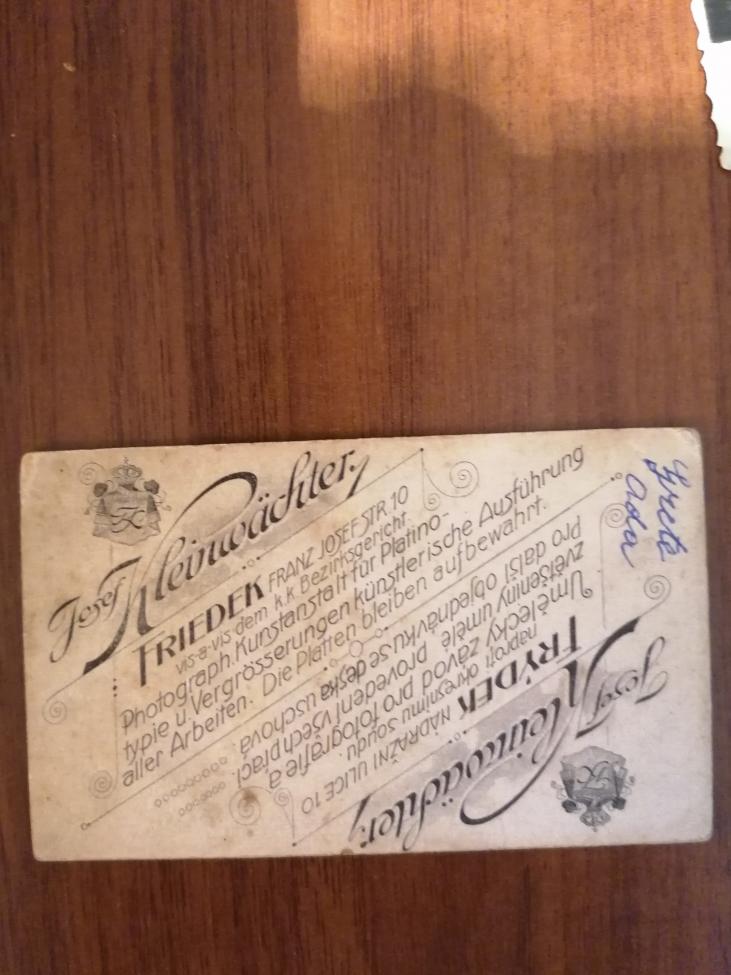 Josef Kleinwächter,
FRIEDEK FRANZ JOSEF STR. 10
vis-a-vis dem k.k. Bezirksgericht.
Photograph. Kunstanstalt für Platino-
typie u. Vergrösserungen künstlerische Ausführung
aller Arbeiten. Die Platten bleiben aufbewahrt.
Josef Kleinwächter,
FRÝDEK NÁDRAŽNI ULICE 10
naproti okresnimu soudu.
Umělecky závod pro fotografie a
zvětšeniny umělé provedeni všech praci.
pro dalši objednávku se deska uschová
Grete
Ada